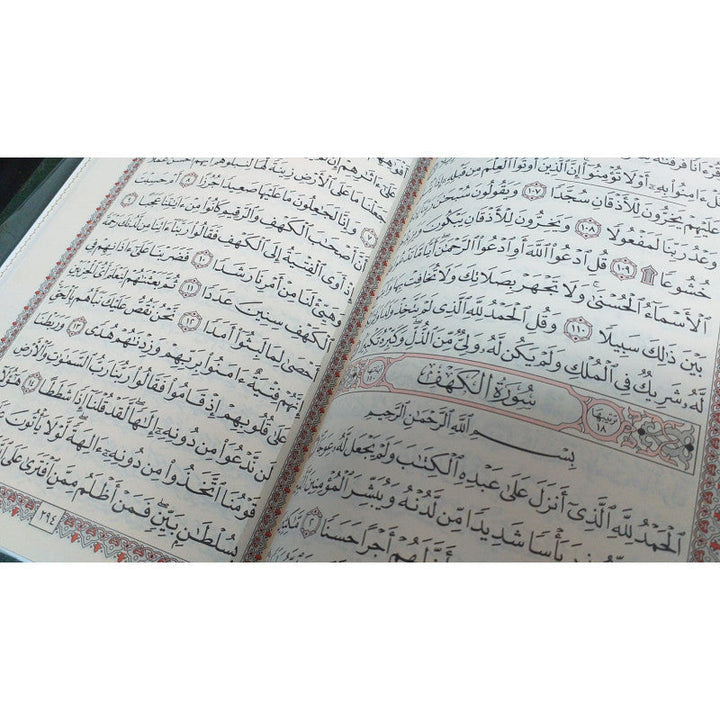 وَقُرْءَانًا فَرَقْنَ
ءَامِنُوا۟ بِهِۦٓ أَوْ لَا تُؤْمِنُوٓا۟ إِنَّ ٱلَّذِينَ أُوتُوا۟ ٱلْعِلْمَ مِن قَبْلِهِۦٓ
عَلَيْهِمْ يَخِرُّونَ لِلْأَذْقَانِ سُجَّدًا ١٠٧ وَيَقُولُونَ سُبْحَٰنَ
وَعْدُ رَبِّنَا لَمَفْعُولًا ١٠٨ وَيَخِرُّونَ لِلْأَذْقَانِ يَبْكُونَ
خُشُوعًا ۩ ١٠٩ قُلِ ٱدْعُوا۟ ٱللَّهَ أَوِ ٱدْعُوا۟ ٱلرَّحْمَٰنَ أَيًّا
ٱلْأَسْمَآءُ ٱلْحُسْنَىٰ وَلَا تَجْهَرْ بِصَلَاتِكَ وَلَا تُخَافِتْ بِهَا
بَيْنَ ذَٰلِكَ سَبِيلًا ١١٠ وَقُلِ ٱلْحَمْدُ لِلَّهِ ٱلَّذِى لَمْ يَتَّخِذْ وَلَدًا
لَّهُۥ شَرِيكٌ فِى ٱلْمُلْكِ وَلَمْ يَكُن لَّهُۥ وَلِىٌّ مِّنَ ٱلذُّلِّ وَكَبِّرْهُ تَكْبِيرًا
ترتيبها ١٨ سُورَةُ ٱلْكَهْفِ
بِسْمِ ٱللَّهِ ٱلرَّحْمَٰنِ ٱلرَّحِيمِ
ٱلْحَمْدُ لِلَّهِ ٱلَّذِىٓ أَنزَلَ عَلَىٰ عَبْدِهِ ٱلْكِتَٰبَ وَلَمْ يَجْعَل لَّهُۥ عِوَجَا
بَأْسًا شَدِيدًا مِّن لَّدُنْهُ وَيُبَشِّرَ ٱلْمُؤْمِنِينَ
أَنَّ لَهُمْ أَجْرًا حَسَنًا ٢ مَّٰكِثِينَ
عَلَىٰٓ ءَاثَٰرِهِمْ إِن
جَعَلْنَا مَا عَلَى ٱلْأَرْضِ زِينَةً لَّهَا لِنَبْلُوَهُمْ أَيُّهُمْ أَحْسَنُ عَمَلًا
٧ وَإِنَّا لَجَٰعِلُونَ مَا عَلَيْهَا صَعِيدًا جُرُزًا ٨ أَمْ حَسِبْتَ
أَنَّ أَصْحَٰبَ ٱلْكَهْفِ وَٱلرَّقِيمِ كَانُوا۟ مِنْ ءَايَٰتِنَا عَجَبًا ٩
إِذْ أَوَى ٱلْفِتْيَةُ إِلَى ٱلْكَهْفِ فَقَالُوا۟ رَبَّنَآ ءَاتِنَا مِن لَّدُنكَ رَحْمَةً
وَهَيِّئْ لَنَا مِنْ أَمْرِنَا رَشَدًا ١٠ فَضَرَبْنَا عَلَىٰٓ ءَاذَانِهِمْ فِى
ٱلْكَهْفِ سِنِينَ عَدَدًا ١١ ثُمَّ بَعَثْنَٰهُمْ لِنَعْلَمَ أَىُّ ٱلْحِزْبَيْنِ
أَحْصَىٰ لِمَا لَبِثُوٓا۟ أَمَدًا ١٢ نَّحْنُ نَقُصُّ عَلَيْكَ نَبَأَهُم بِٱلْحَقِّ
إِنَّهُمْ فِتْيَةٌ ءَامَنُوا۟ بِرَبِّهِمْ وَزِدْنَٰهُمْ هُدًى ١٣ وَرَبَطْنَا
عَلَىٰ قُلُوبِهِمْ إِذْ قَامُوا۟ فَقَالُوا۟ رَبُّنَا رَبُّ ٱلسَّمَٰوَٰتِ وَٱلْأَرْضِ
لَن نَّدْعُوَا۟ مِن دُونِهِۦٓ إِلَٰهًا لَّقَدْ قُلْنَآ إِذًا شَطَطًا ١٤ هَٰٓؤُلَآءِ
قَوْمُنَا ٱتَّخَذُوا۟ مِن دُونِهِۦٓ ءَالِهَةً لَّوْلَا يَأْتُونَ عَلَيْهِم
بِسُلْطَٰنٍۭ بَيِّنٍ فَمَنْ أَظْلَمُ مِمَّنِ ٱفْتَرَىٰ عَلَى
٢٩٤